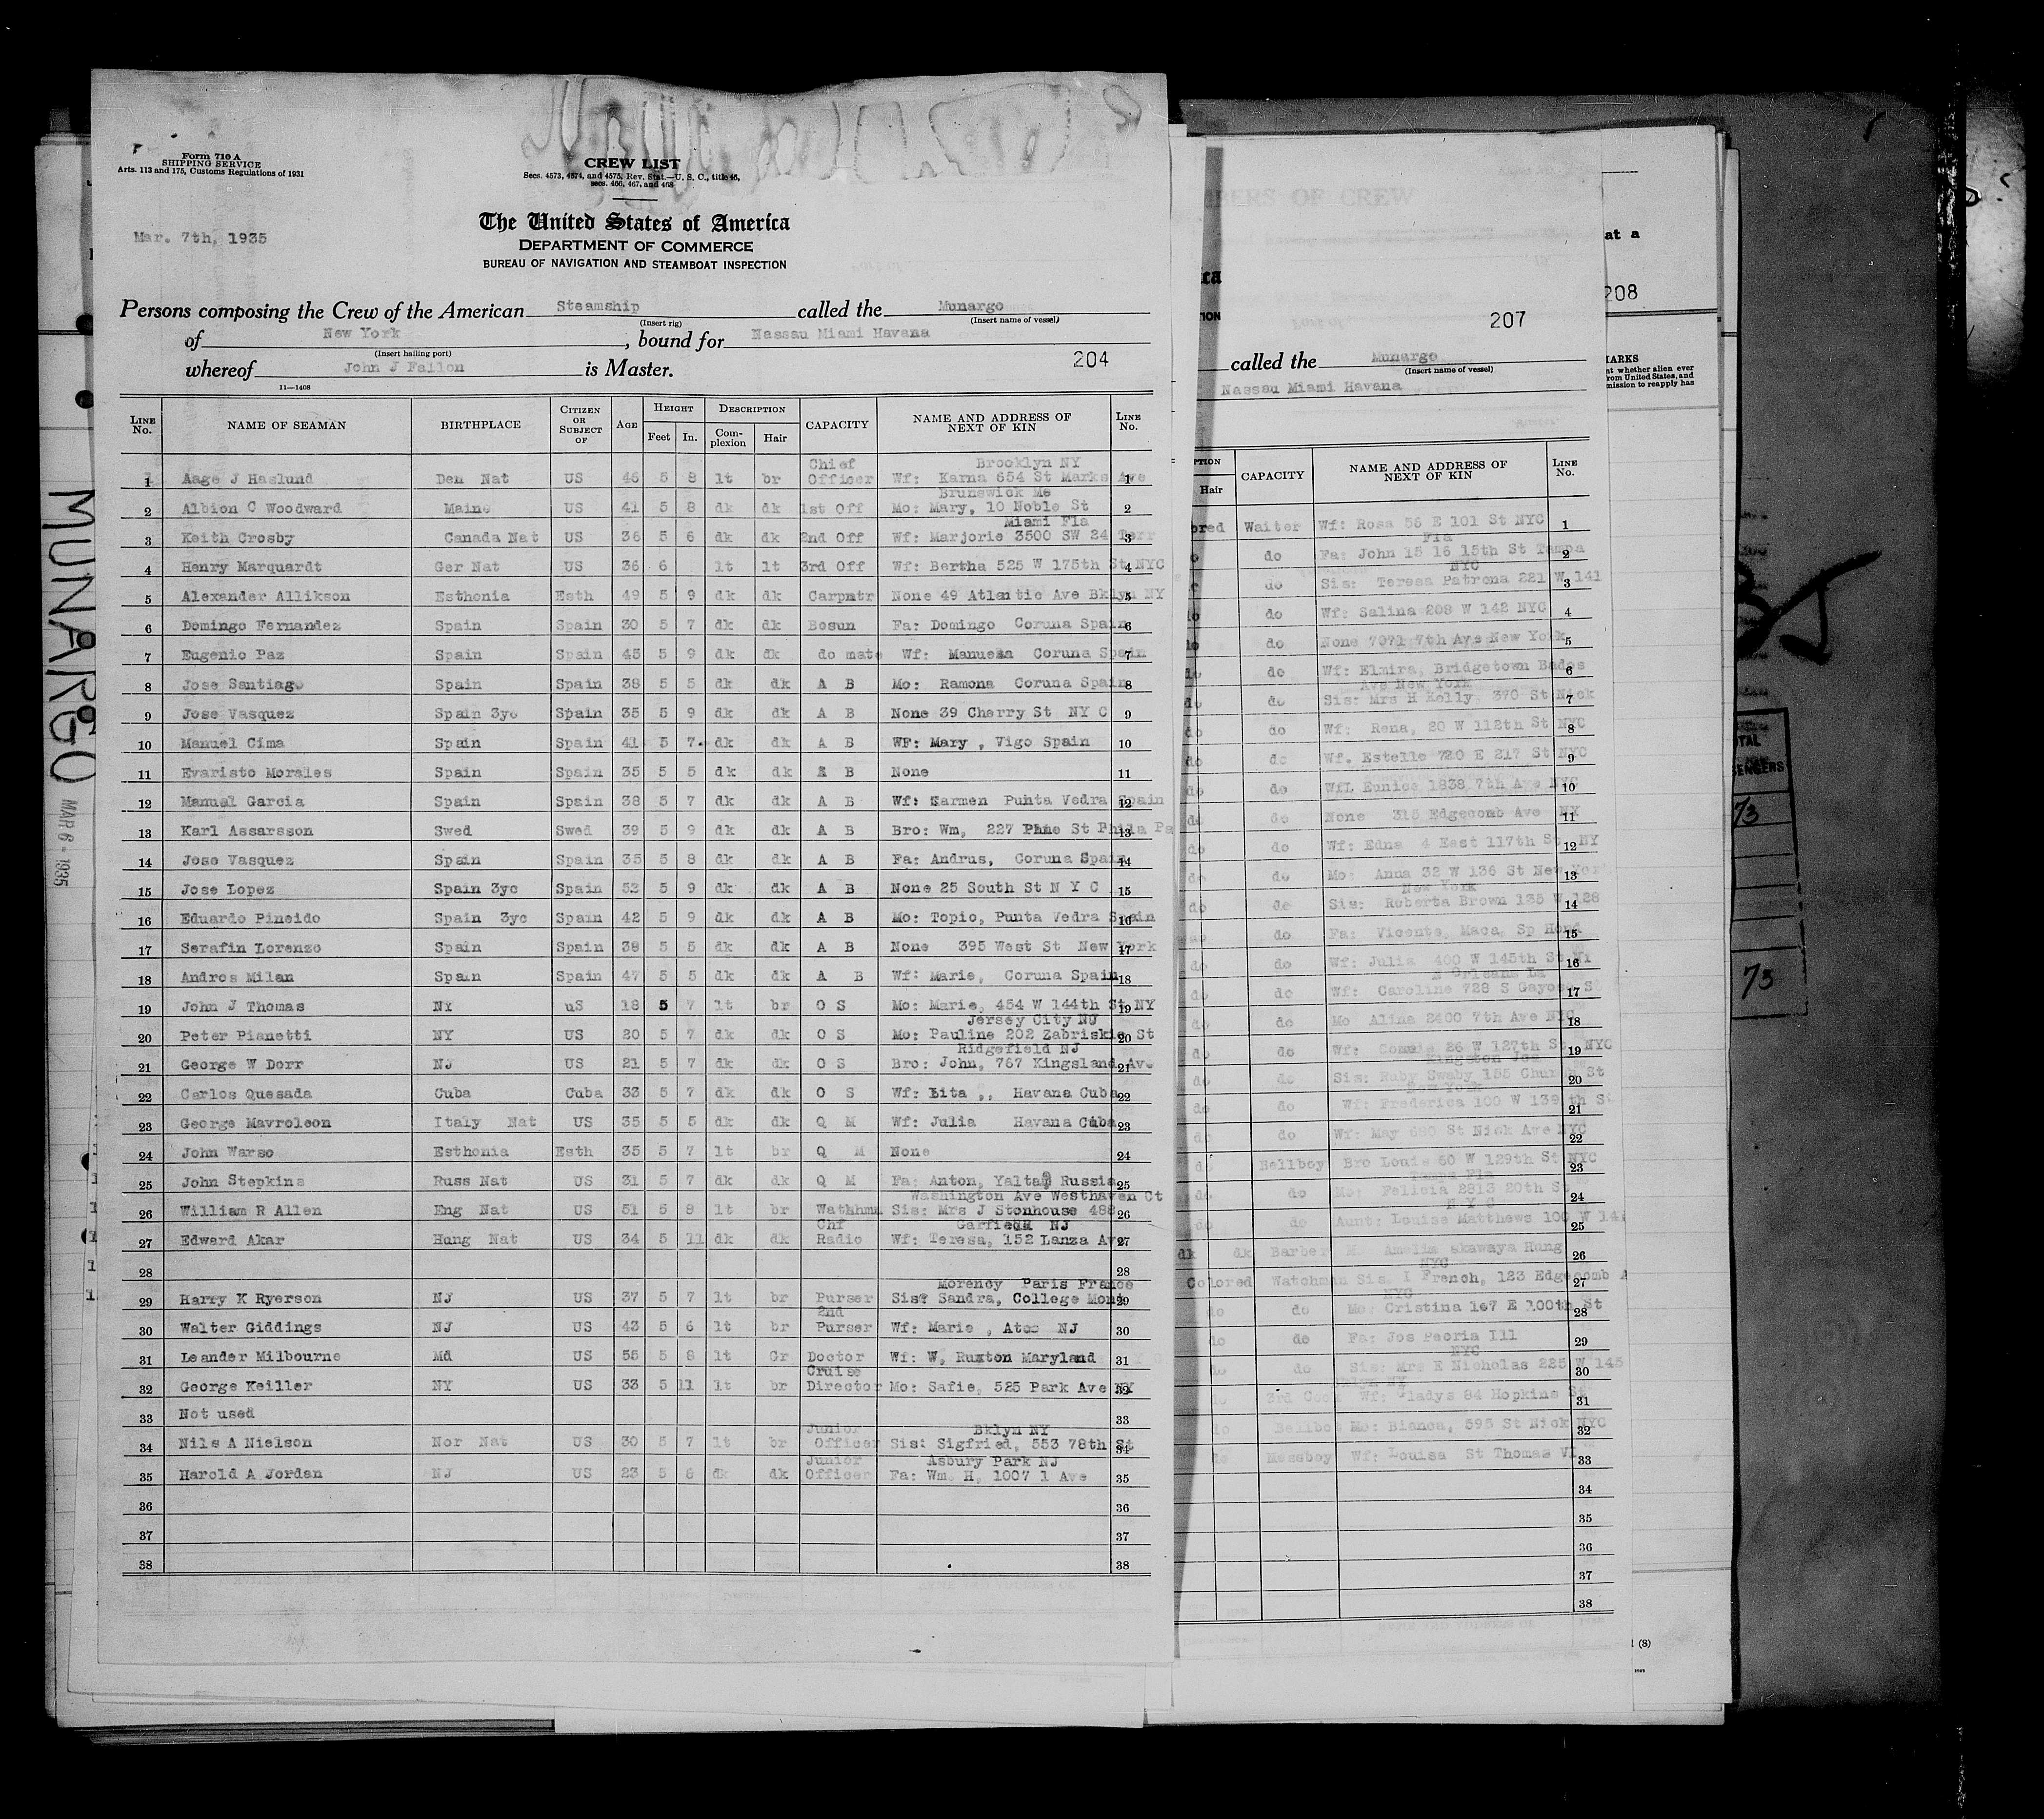 Form 710 A
SHIPPING SERVICE
Arts. 113 and 175, Customs Regulations of 1931
CREW LIST
Secs. 4573, 4574, and 4575, Rev. Stat.—U. S. C., title 46,
secs. 466, 467, and 468
The United States of America
DEPARTMENT OF COMMERCE
BUREAU OF NAVIGATION AND STEAMBOAT INSPECTION
Mar. 7th, 1935
Persons composing the Crew of the American Steamship called the Munargo
(Insert rig) (Insert name of vessel)
of New York, bound for Nassau Miami Havana
(Insert hailing port)
whereof John J Failon is Master. 204
11—1408
LINE No. NAME OF SEAMAN BIRTHPLACE CITIZEN OR SUBJECT OF AGE HEIGHT Feet In. DESCRIPTION Complexion Hair CAPACITY NAME AND ADDRESS OF NEXT OF KIN LINE No.
1 Aage J Haslund Den Nat US 46 5 8 lt br Chief Officer Wf: Karna 654 St Marks Ave Brooklyn NY 1
2 Albion C Woodward Maine US 41 5 8 dk dk 1st Off Mo: Mary, 10 Noble St Brunswick Me 2
3 Keith Crosby Canada Nat US 36 5 6 dk dk 2nd Off Wf: Marjorie 3500 SW 24 Terr Miami Fla 3
4 Henry Marquardt Ger Nat US 36 6 lt lt 3rd Off Wf: Bertha 525 W 175th St NYC 4
5 Alexander Allikson Esthonia Esth 49 5 9 dk dk Carpntr None 49 Atlantic Ave Bklyn NY 5
6 Domingo Fernandez Spain Spain 30 5 7 dk dk Bosun Fa: Domingo Coruna Spain 6
7 Eugenio Paz Spain Spain 45 5 9 dk dk do mate Wf: Manuela Coruna Spain 7
8 Jose Santiago Spain Spain 38 5 5 dk dk A B Mo: Ramona Coruna Spain 8
9 Jose Vasquez Spain 3yc Spain 35 5 9 dk dk A B None 39 Cherry St NY C 9
10 Manuel Cima Spain Spain 41 5 7 dk dk A B WF: Mary , Vigo Spain 10
11 Evaristo Morales Spain Spain 35 5 5 dk dk A B None 11
12 Manuel Garcia Spain Spain 38 5 7 dk dk A B Wf: Karmen Punta Vedra Spain 12
13 Karl Assarsson Swed Swed 39 5 9 dk dk A B Bro: Wm, 227 Pine St Phila Pa 13
14 Jose Vasquez Spain Spain 35 5 8 dk dk A B Fa: Andrus, Coruna Spain 14
15 Jose Lopez Spain 3yc Spain 52 5 9 dk dk A B None 25 South St N Y C 15
16 Eduardo Pineido Spain 3yc Spain 42 5 9 dk dk A B Mo: Topio, Punta Vedra Spain 16
17 Serafin Lorenzo Spain Spain 38 5 5 dk dk A B None 395 West St New York 17
18 Andros Milan Spain Spain 47 5 5 dk dk A B Wf: Marie, Coruna Spain 18
19 John J Thomas NY uS 18 5 7 lt br O S Mo: Marie, 454 W 144th St NY 19
20 Peter Pianetti NY US 20 5 7 dk dk O S Mo: Pauline 202 Zabriskie St Jersey City NJ 20
21 George W Dorr NJ US 21 5 7 dk dk O S Bro: John, 767 Kingsland Ave Ridgefield NJ 21
22 Carlos Quesada Cuba Cuba 33 5 7 dk dk O S Wf: Lita ,, Havana Cuba 22
23 George Mavroleon Italy Nat US 35 5 5 dk dk Q M Wf: Julia Havana Cuba 23
24 John Warso Esthonia Esth 35 5 7 lt br Q M None 24
25 John Stepkins Russ Nat US 31 5 7 dk dk Q M Fa: Anton, Yalta Russia 25
26 William R Allen Eng Nat US 51 5 8 lt br Wathhmn Sis: Mrs J Stonhouse 488 Washington Ave Westhaven Ct 26
27 Edward Akar Hung Nat US 34 5 11 dk dk Chf Radio Wf: Teresa, 152 Lanza Ave Garfield NJ 27
28 28
29 Harry K Ryerson NJ US 37 5 7 lt br Purser Sis: Sandra, College Mont Morency Paris France 29
30 Walter Giddings NJ US 43 5 6 lt br 2nd Purser Wf: Marie , Atco NJ 30
31 Leander Milbourne Md US 55 5 8 lt Gr Doctor Wf: W, Ruxton Maryland 31
32 George Keiller NY US 33 5 11 lt br Cruise Director Mo: Safie, 525 Park Ave NY 32
33 Not used 33
34 Nils A Nielson Nor Nat US 30 5 7 lt br Junior Officer Sis: Sigfried, 553 78th St Bklyn NY 34
35 Harold A Jordan NJ US 23 5 8 dk dk Junior Officer Fa: Wm. H, 1007 1 Ave Asbury Park NJ 35
36 36
37 37
38 38
MUNARGO
MAR 6 - 1935
207
called the Munargo
(Insert name of vessel)
Nassau Miami Havana
Hair CAPACITY NAME AND ADDRESS OF NEXT OF KIN LINE No.
Waiter Wf: Rosa 56 E 101 St NYC 1
do Fa: John 15 16 15th St Tampa Fla 2
do Sis: Teresa Patrona 221 W 141 NYC 3
do Wf: Salina 208 W 142 NYC 4
do None 7071 7th Ave New York 5
do Wf: Elmira, Bridgetown Bados 6
do Sis: Mrs H Kelly 370 St Nick Ave New York 7
do Wf: Rena, 20 W 112th St NYC 8
do Wf. Estelle 720 E 217 St NYC 9
do Wf: Eunice 1838 7th Ave NYC 10
do None 315 Edgecomb Ave NY 11
do Wf: Edna 4 East 117th St NY 12
do Mo: Anna 32 W 136 St New York 13
do Sis: Roberta Brown 135 W 128 New York 14
do Fa: Vicente, Maca, Sp Hond 15
do Wf: Julia 400 W 145th St 16
do Wf: Caroline 728 S Gayoso St N Orleans La 17
do Mo Alina 2400 7th Ave NYC 18
do Wf: 26 W 127th St NYC 19
do Sis: Ruby Swaby 155 Church St Kingston Jca 20
do Wf: Frederica 100 W 139 th St New York 21
do Wf: May 690 St Nick Ave NYC 22
Bellboy Bro Louis 60 W 129th St NYC 23
do Mo: Felicia 2813 20th St Tampa Fla 24
do Aunt: Louise Matthews 100 W 141 N Y C 25
dk dk Barber Amelia Hung 26
Colored Watchman Sis. I French, 123 Edgecomb A NYC 27
do do Mo: Cristina 167 E 100th St NYC 28
do do Fa: Jos Peoria Ill 29
do do Sis: Mrs E Nicholas 225 W 145 NYC 30
do 3rd Cook Wf: Gladys 84 Hopkins St Bklyn NY 31
do Bellboy Mo: Bianca, 595 St Nick NYC 32
do Messboy Wf: Louisa St Thomas VI 33
34
35
36
37
38
at a
208
73
73